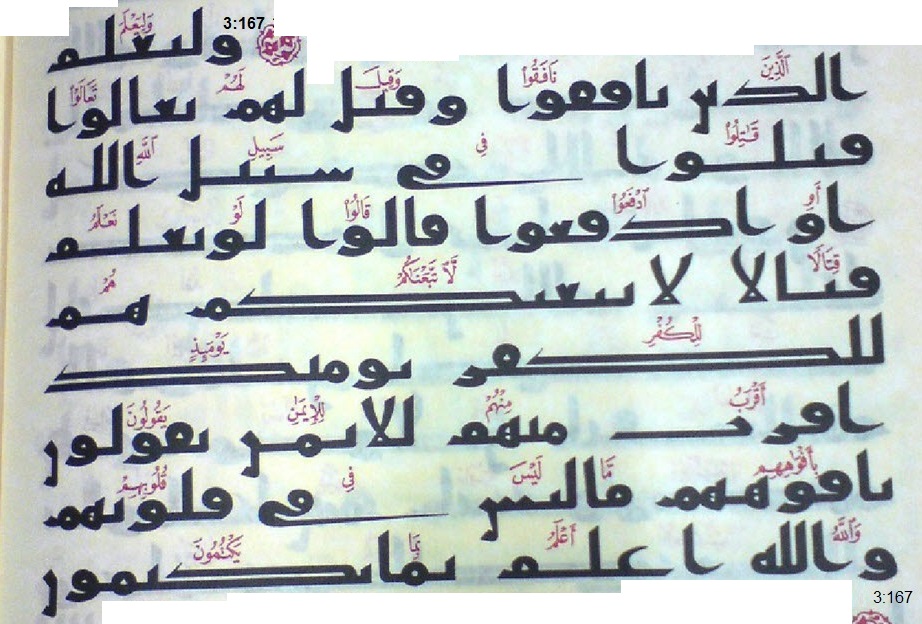 3:167
وَلِيَعْلَمَ
وليعلم
ٱلَّذِينَ نَافَقُوا۟ وَقِيلَ لَهُمْ تَعَالَوْا۟
الذين نافقوا وقيل لهم تعالوا
قَٰتِلُوا۟ فِى سَبِيلِ ٱللَّهِ
قتلوا في سبيل الله
أَوِ ٱدْفَعُوا۟ قَالُوا۟ لَوْ نَعْلَمُ
او ادفعوا قالوا لو نعلم
قِتَالًا لَّٱتَّبَعْنَٰكُمْ هُمْ
قتالا لاتبعنكم هم
لِلْكُفْرِ يَوْمَئِذٍ
للكفر يومئذ
أَقْرَبُ مِنْهُمْ لِلْإِيمَٰنِ يَقُولُونَ
اقرب منهم للايمن يقولون
بِأَفْوَٰهِهِم مَّا لَيْسَ فِى قُلُوبِهِمْ
بافوههم ما ليس في قلوبهم
وَٱللَّهُ أَعْلَمُ بِمَا يَكْتُمُونَ
والله اعلم بما يكتمون
3:167